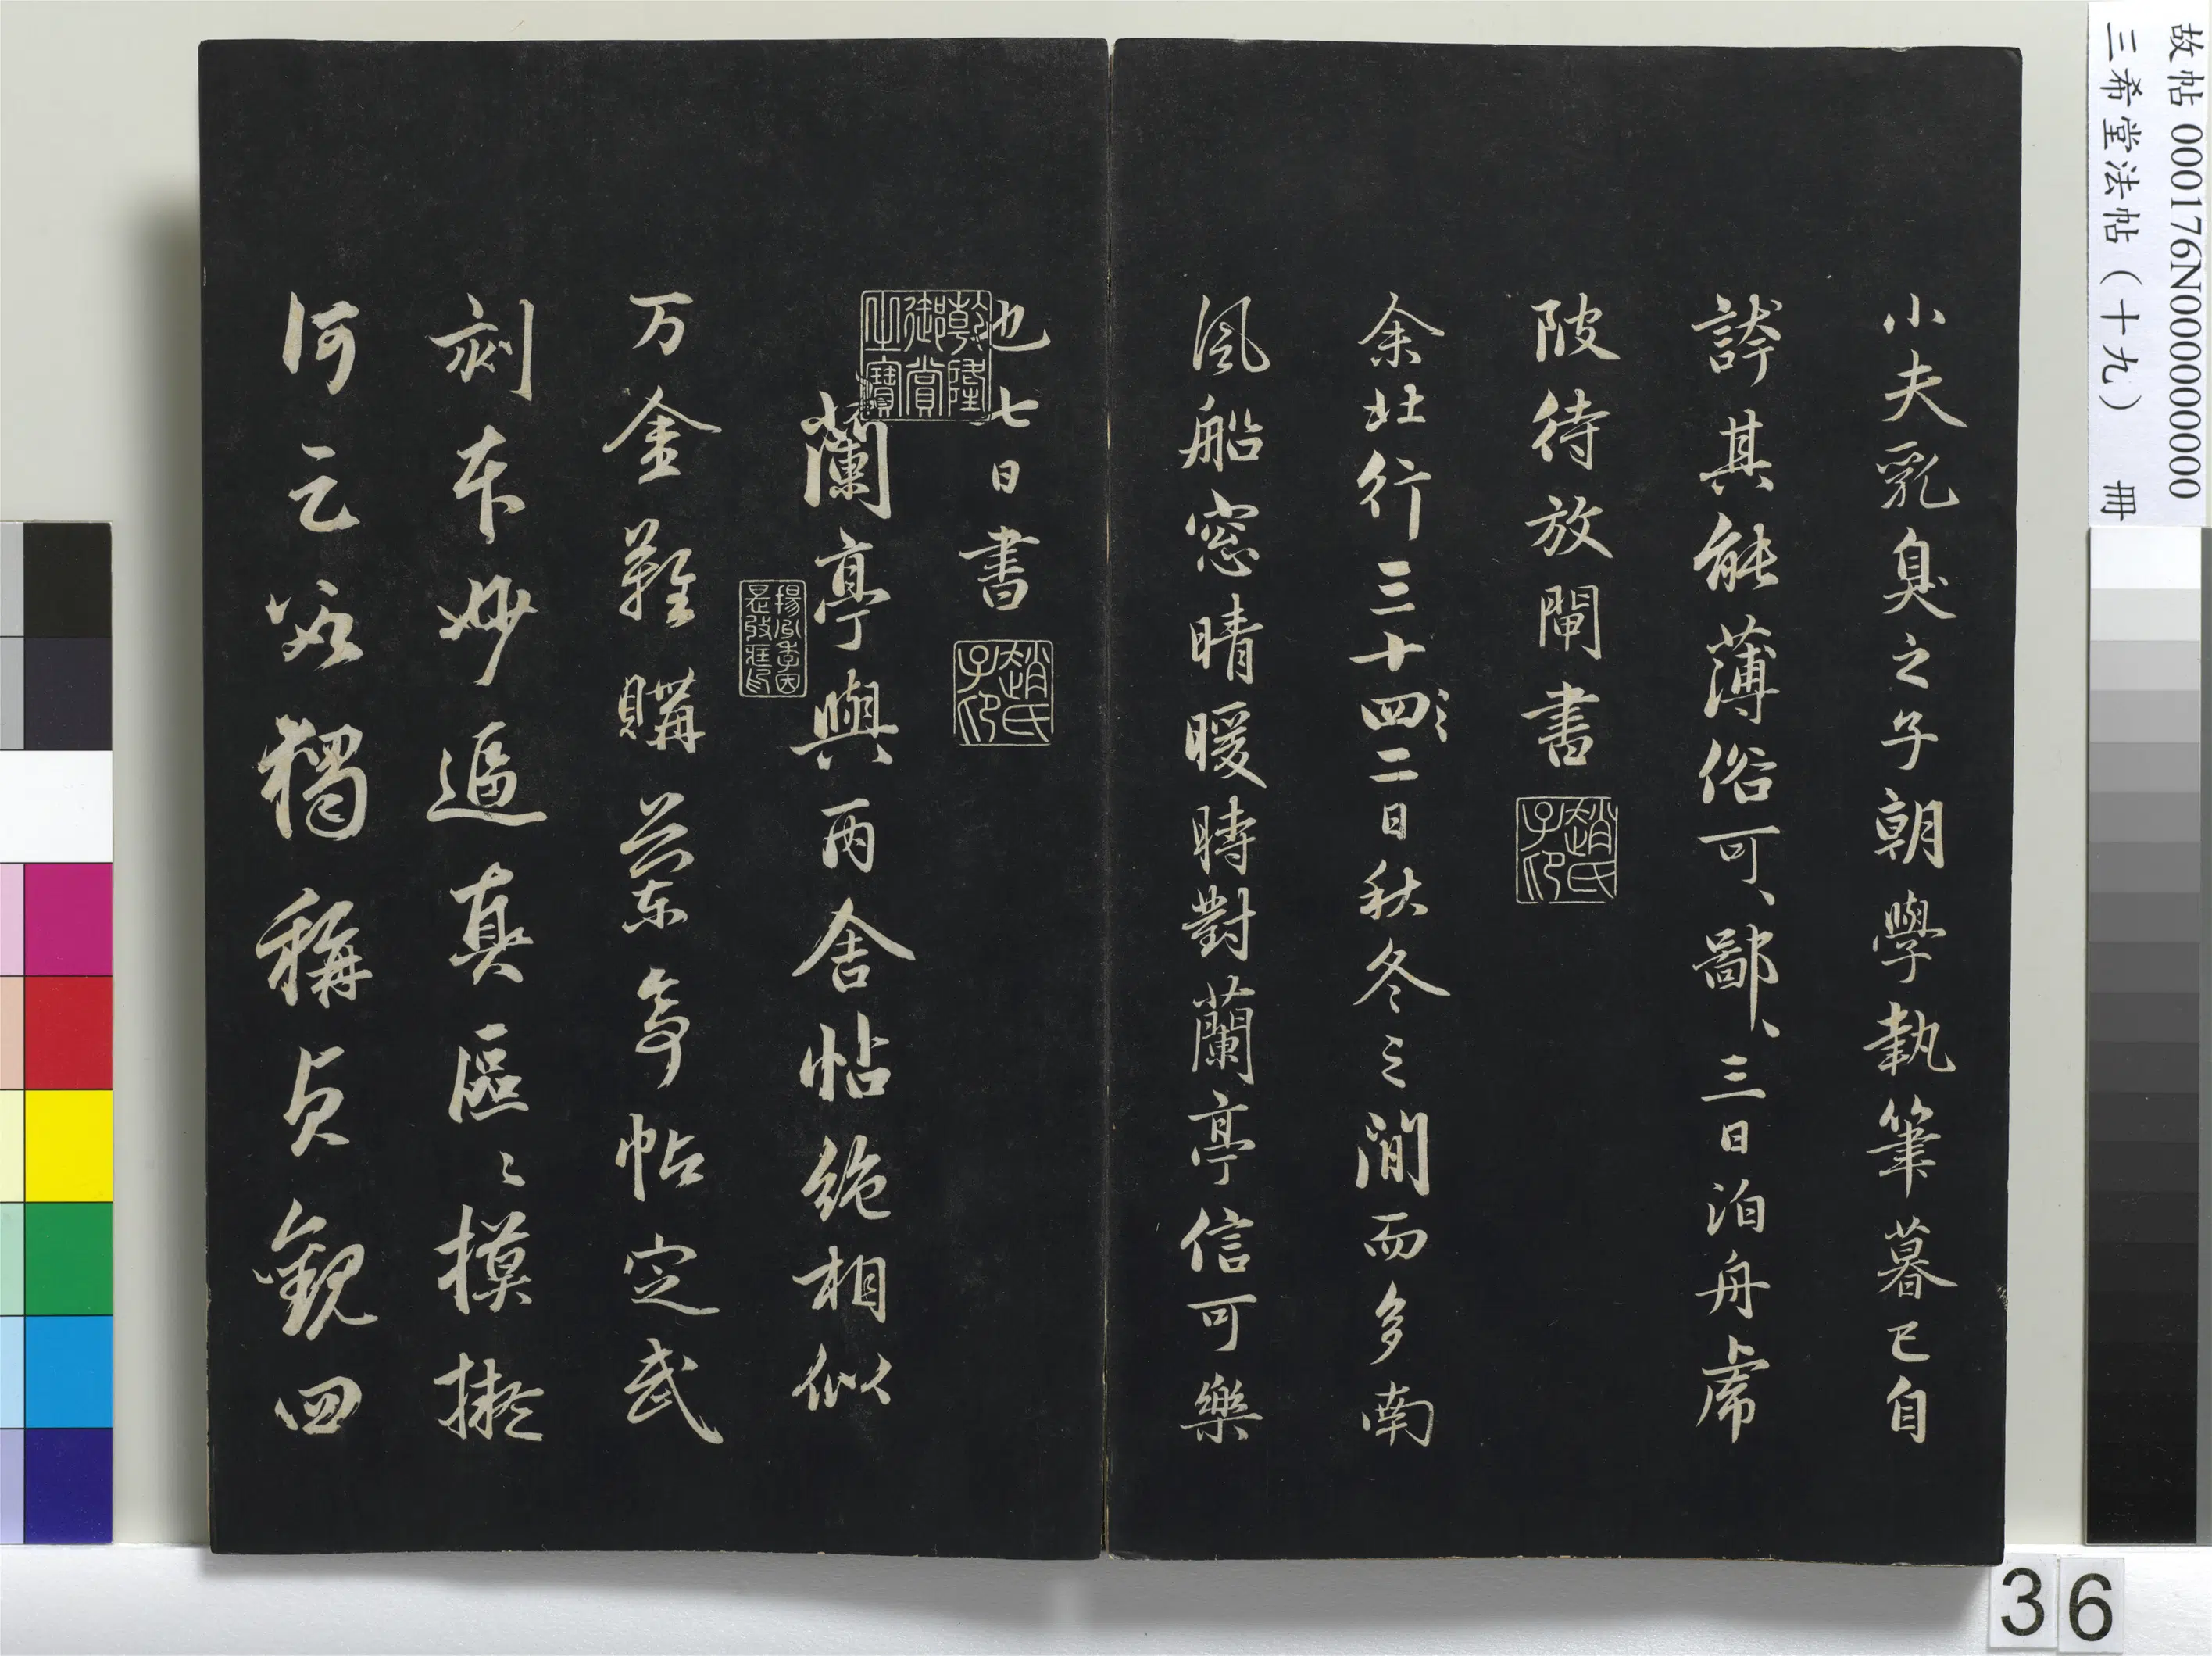 小夫乳臭之子朝學執筆暮已自
誇其能薄俗可、鄙、三日泊舟虎
陂待放閘書
趙氏子印
余北行三十四二日秋冬之間而多南
風船窓晴暖時對蘭亭信可樂
也七日書
趙氏子印
乾隆御賞之寶
蘭亭與丙舍帖絶相似
万金難購蘭亭帖定武
刻本妙逼真區〻摸擬
何足為獨稱貞觀四
故帖 000176N000000000
三希堂法帖（十九） 冊
36